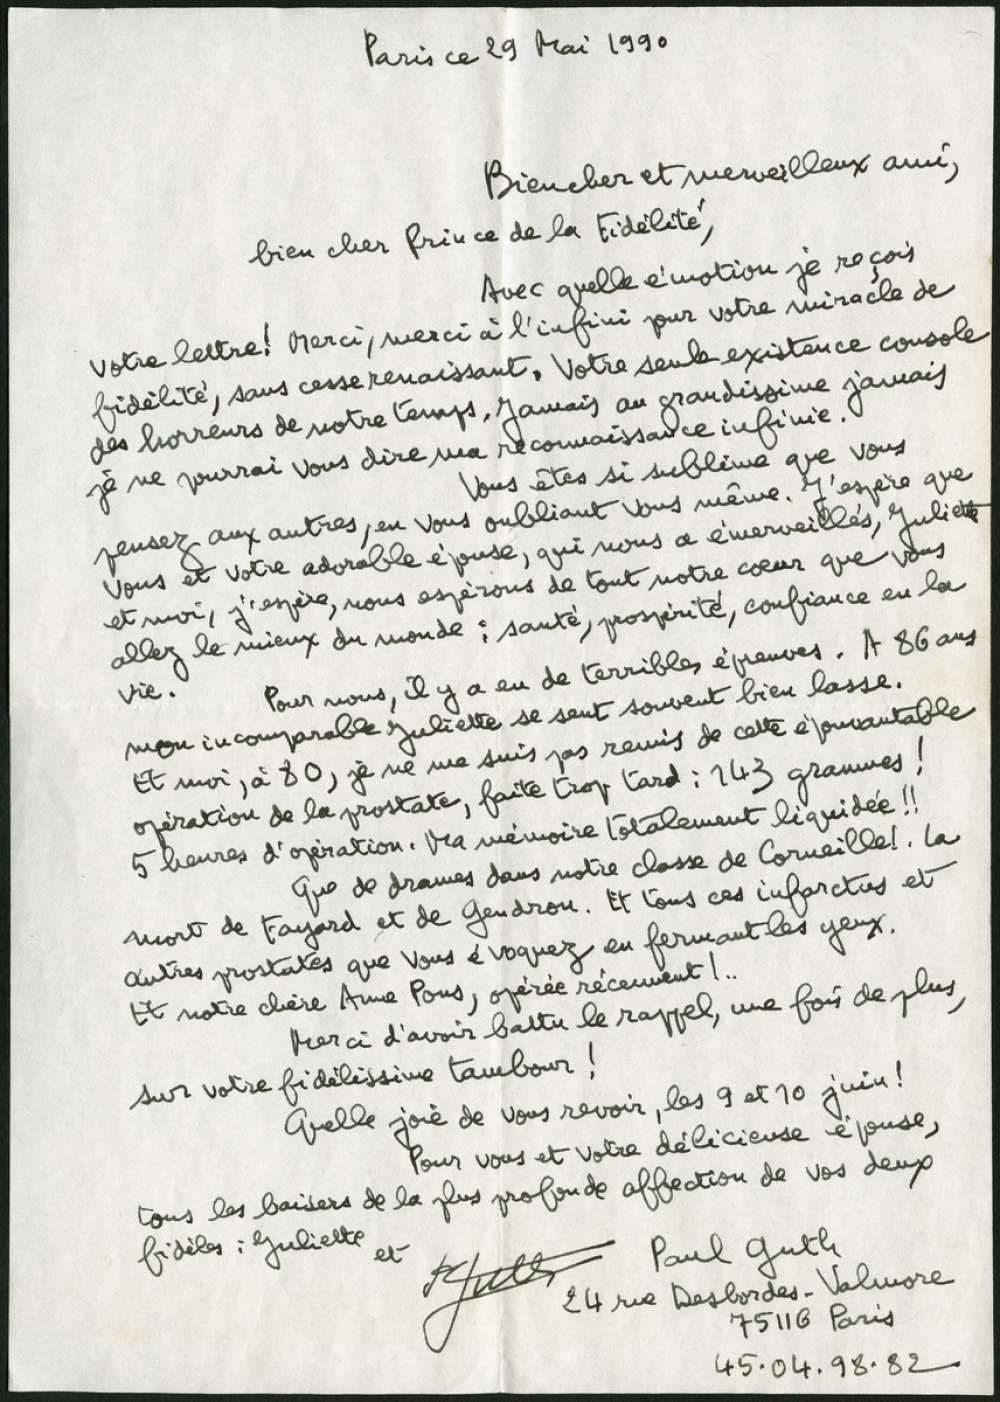 Paris ce 29 Mai 1990
Bien cher et merveilleux ami,
bien cher Prince de la Fidélité,
Avec quelle émotion je reçois
votre lettre! Merci, merci à l'infini pour votre miracle de
fidélité, sans cesse renaissant. Votre seule existence console
des horreurs de notre temps. Jamais au grandissime jamais
je ne pourrai vous dire ma reconnaissance infinie.
Vous êtes si sublime que vous
pensez aux autres, en vous oubliant vous même. J'espère que
vous et votre adorable épouse, qui nous a émerveillés, Juliette
et moi, j'espère, nous espérons de tout notre coeur que vous
allez le mieux du monde : santé, prospérité, confiance en la
vie.
Pour nous, il y a eu de terribles épreuves. A 86 ans
mon incomparable Juliette se sent souvent bien lasse.
Et moi, à 80, je ne me suis pas remis de cette épouvantable
opération de la prostate, faite trop tard : 143 grammes !
5 heures d'opération. Ma mémoire totalement liquidée !!
Que de drames dans notre classe de Corneille!. La
mort de Fayard et de Gendron. Et tous ces infarctus et
autres prostates que vous évoquez en fermant les yeux.
Et notre chère Anne Pons, opérée récemment !..
Merci d'avoir battu le rappel, une fois de plus,
sur votre fidélissime tambour !
Quelle joie de vous revoir, les 9 et 10 juin !
Pour vous et votre délicieuse épouse,
tous les baisers de la plus profonde affection de vos deux
fidèles : Juliette et
P Guth
Paul Guth
24 rue Desbordes-Valmore
75116 Paris
45.04.98.82